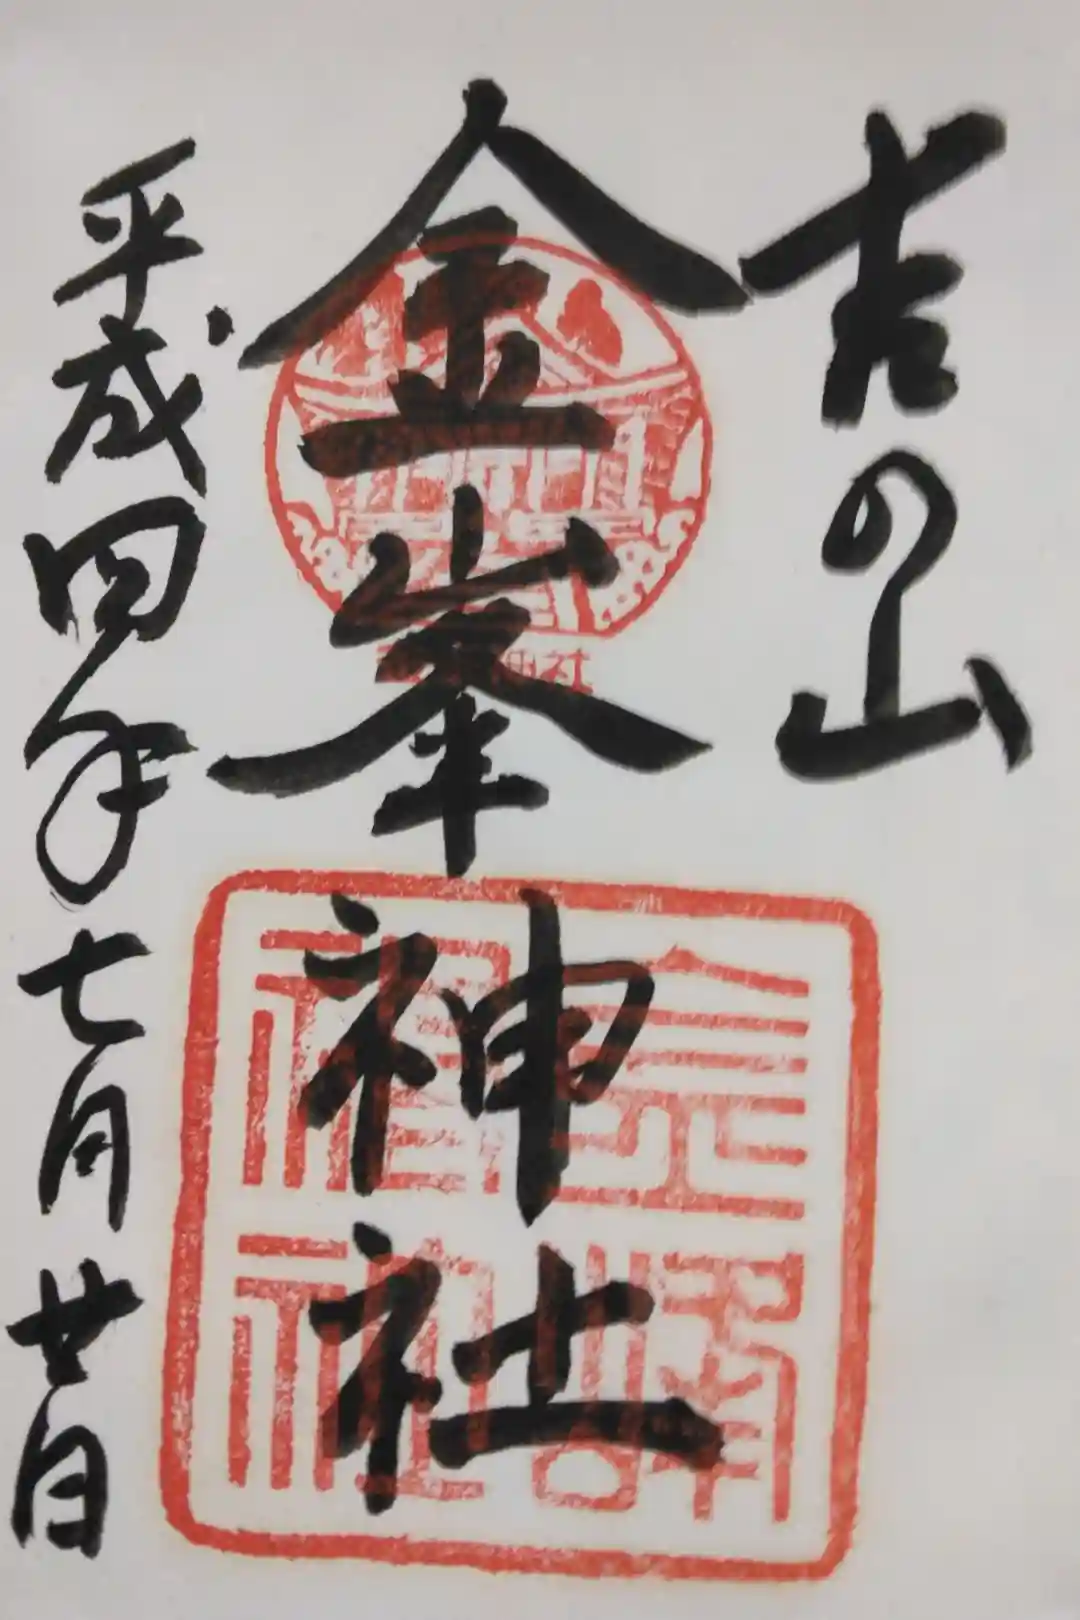 吉の山
金峯神社
平成四年七月廿日
神社
金峯
神社